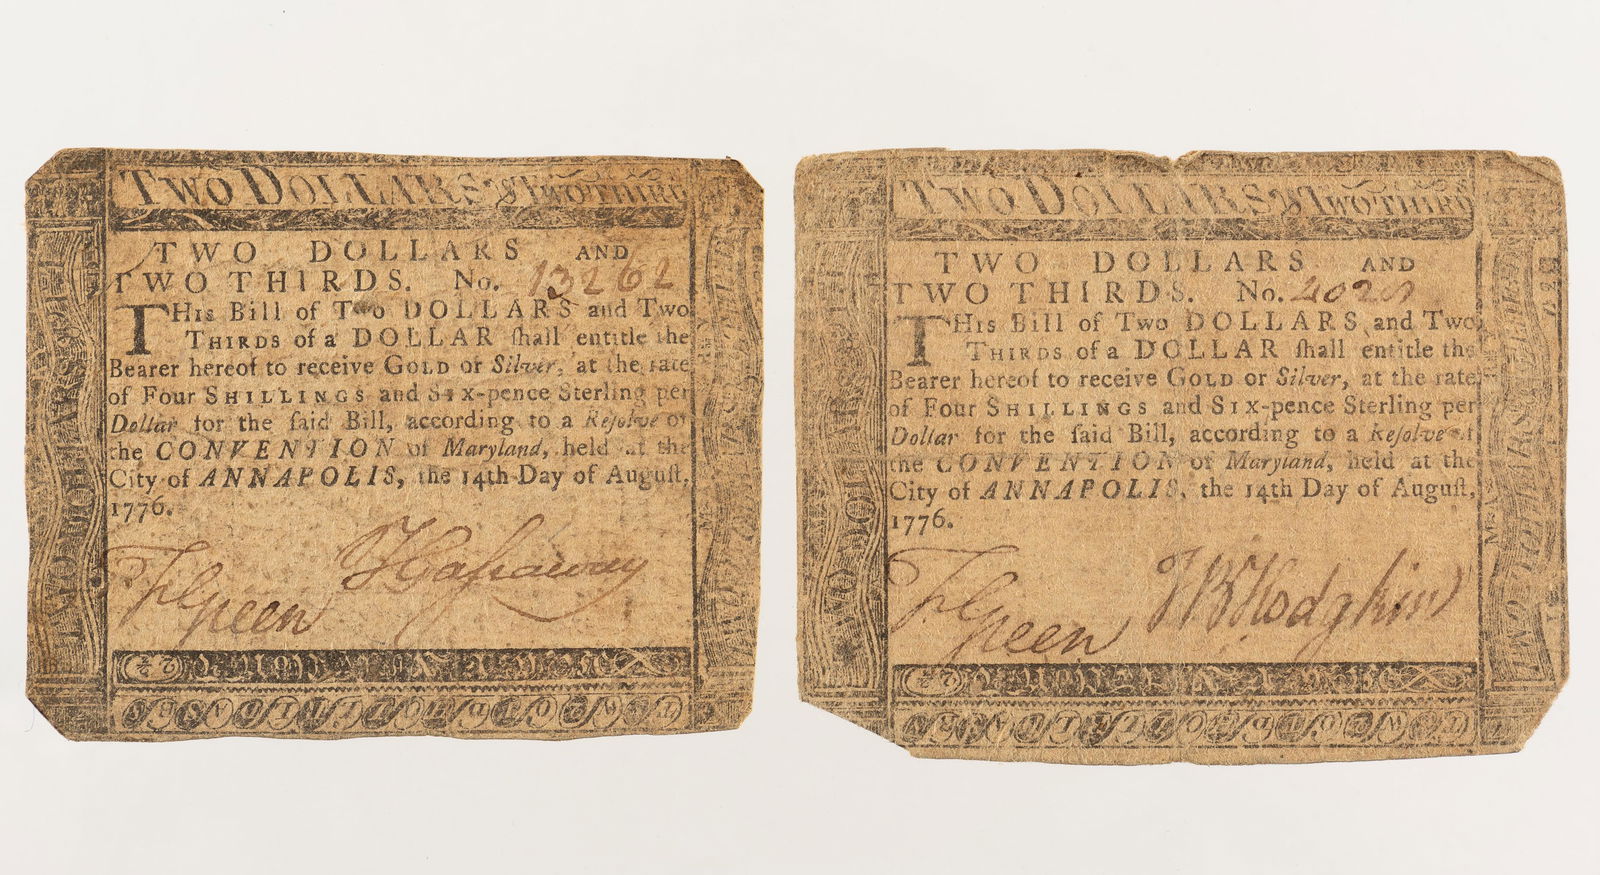 TWO DOLLARS & TWO THIRD
TWO DOLLARS AND
TWO THIRDS. No. 13262
THis Bill of Two DOLLARS and Two
THIRDS of a DOLLAR ſhall entitle the
Bearer hereof to receive GOLD or Silver, at the rate
of Four SHILLINGS and SIX-pence Sterling per
Dollar for the ſaid Bill, according to a Reſolve of
the CONVENTION of Maryland, held at the
City of ANNAPOLIS, the 14th Day of Auguſt,
1776.
F Green
TWO DOLLARS & TWO THIRD
TWO DOLLARS AND
TWO THIRDS. No.
THis Bill of Two DOLLARS and Two
THIRDS of a DOLLAR ſhall entitle the
Bearer hereof to receive GOLD or Silver, at the rate
of Four SHILLINGS and SIX-pence Sterling per
Dollar for the ſaid Bill, according to a Reſolve of
the CONVENTION of Maryland, held at the
City of ANNAPOLIS, the 14th Day of Auguſt,
1776.
F Green
J B Hodgkin